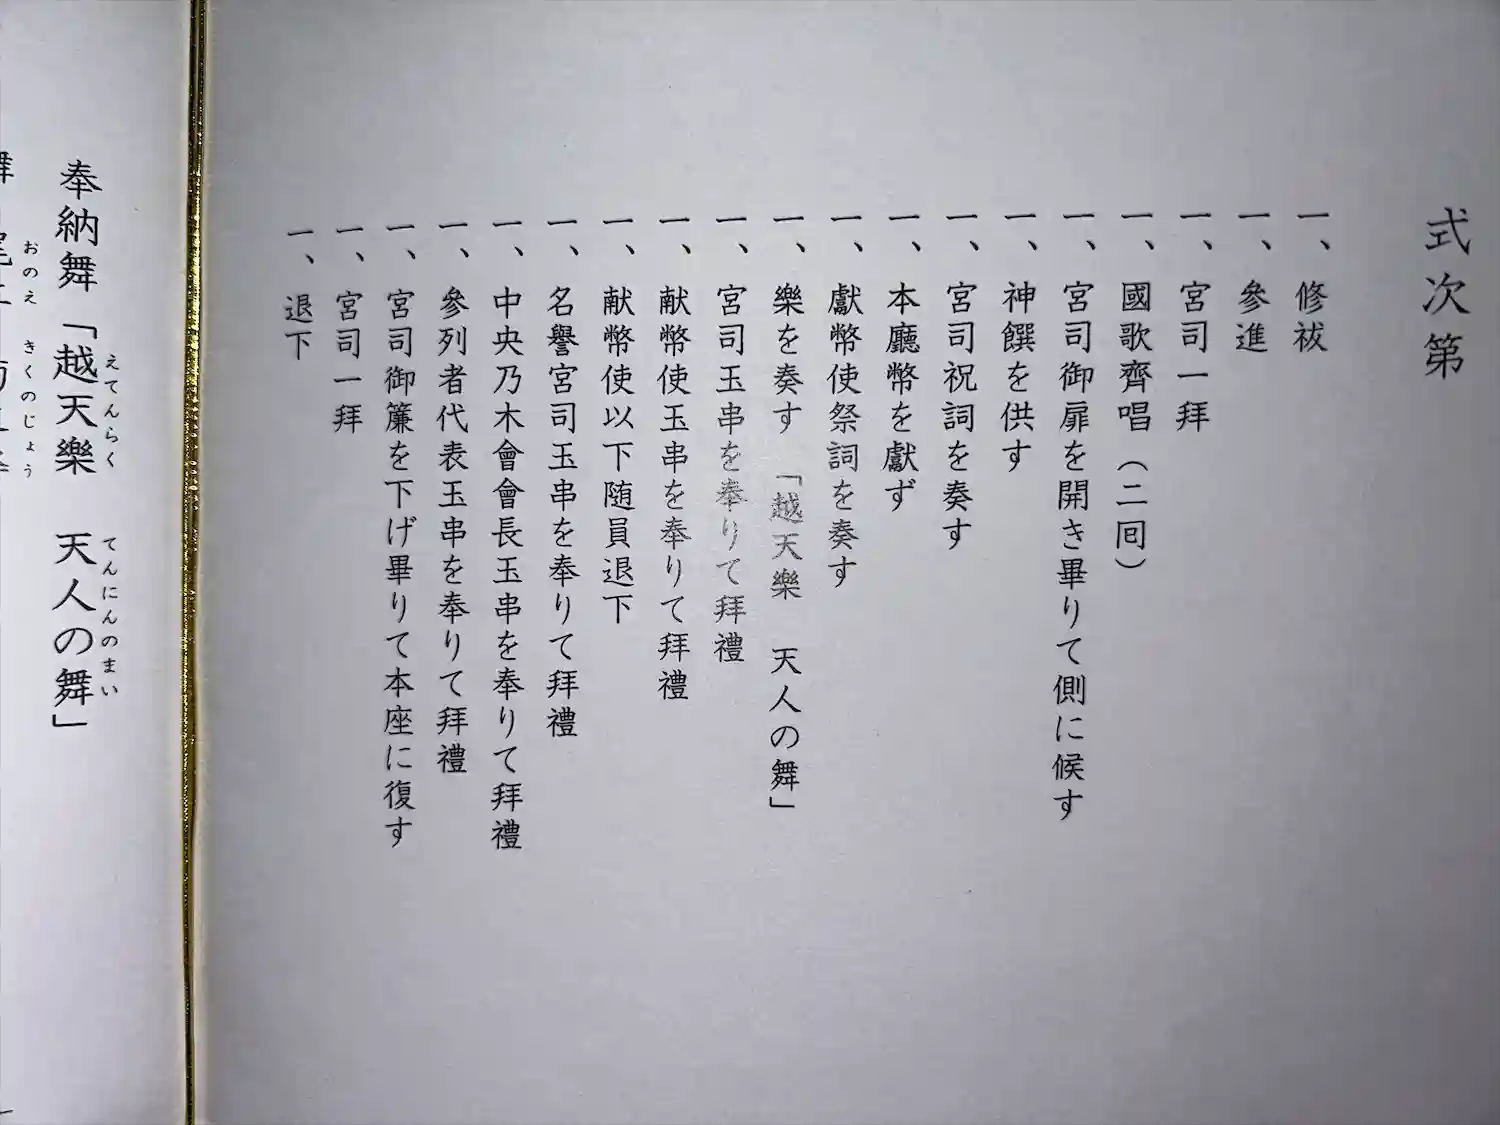 式次第
一、修祓
一、參進
一、宮司一拝
一、國歌齊唱（二囘）
一、宮司御扉を開き畢りて側に候す
一、神饌を供す
一、宮司祝詞を奏す
一、本廳幣を獻ず
一、獻幣使祭詞を奏す
一、樂を奏す 「越天樂 天人の舞」
一、宮司玉串を奉りて拜禮
一、献幣使玉串を奉りて拜禮
一、献幣使以下随員退下
一、名譽宮司玉串を奉りて拜禮
一、中央乃木會會長玉串を奉りて拜禮
一、參列者代表玉串を奉りて拜禮
一、宮司御簾を下げ畢りて本座に復す
一、宮司一拜
一、退下
えてんらく てんにんのまい
奉納舞「越天樂 天人の舞」
おのえ きくのじょう